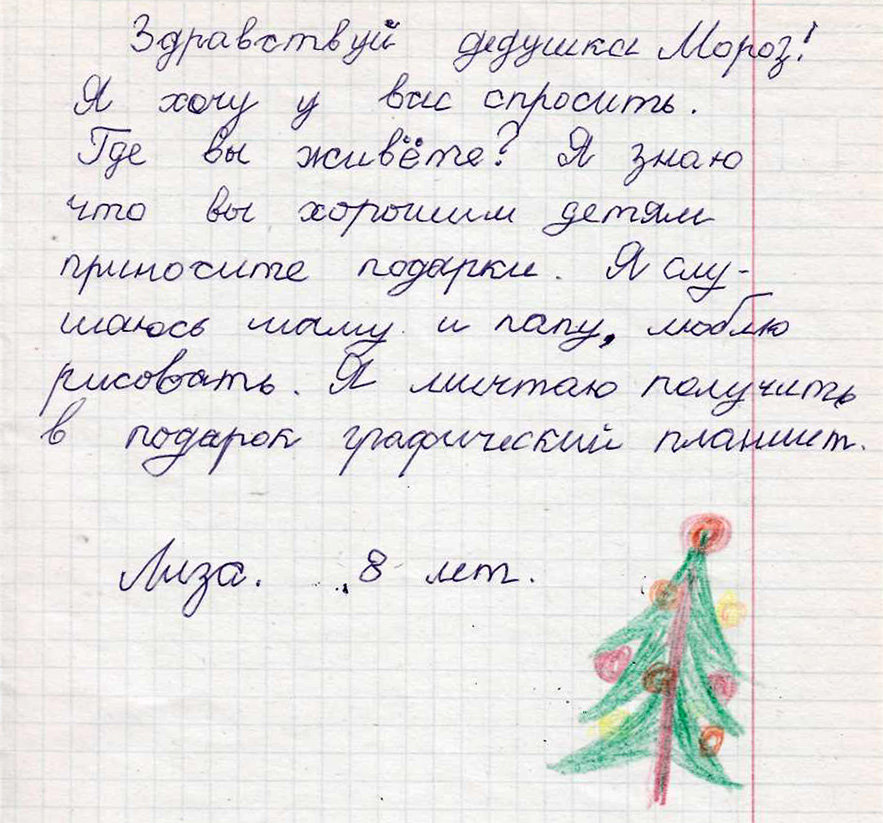 Здравствуй дедушка Мороз!
Я хочу у вас спросить.
Где вы живёте? Я знаю
что вы хорошим детям
приносите подарки. Я слу-
шаюсь маму и папу, люблю
рисовать. Я мичтаю получить
в подарок графический планшет.
Лиза. 8 лет.